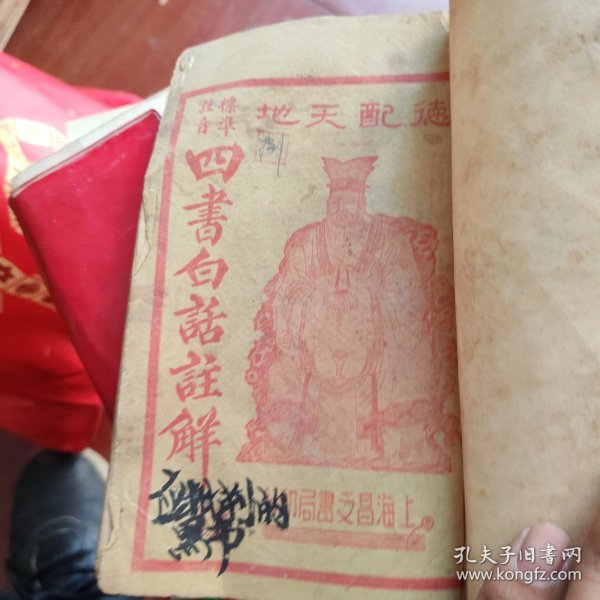 德配天地
標準
註音
四書白話註解
上海昌文書局印
的
孔夫子旧书网
www.kongfz.com